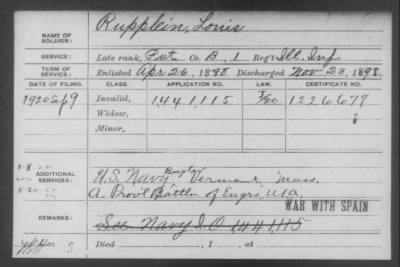 Rupplein, Louis
NAME OF SOLDIER:
SERVICE: Late rank, Pvt Co. B, 1 Reg't Ill. Inf
TERM OF SERVICE: Enlisted Apr 26, 1898. Discharged Nov 23, 1898.
DATE OF FILING. CLASS. APPLICATION NO. LAW. CERTIFICATE NO.
1920 Sep 9 Invalid, 1,441,115 1226677
Widow,
Minor,
ADDITIONAL SERVICES: U.S. Navy Bugler Vermont Mass.
A. Prov'l Battln of Engrs, USA.
WAR WITH SPAIN
REMARKS: See Navy I.O 1441115
Died , 1 , at